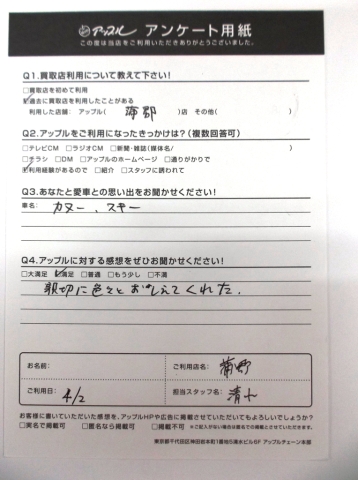 アップル アンケート用紙
この度は当店をご利用いただきありがとうございました。
Q1.買取店利用について教えて下さい!
□買取店を初めて利用
☑過去に買取店を利用したことがある
利用した店舗: アップル( 蒲郡 )店 その他( )
Q2.アップルをご利用になったきっかけは?(複数回答可)
□テレビCM □ラジオCM □新聞・雑誌(媒体名/ )
□チラシ □DM □アップルのホームページ □通りがかりで
☑利用経験があるので □紹介 □スタッフに誘われて
Q3.あなたと愛車との思い出をお聞かせください!
車名: カヌー、スキー
Q4.アップルに対する感想をぜひお聞かせください!
□大満足 ☑満足 □普通 □もう少し □不満
親切に色々とおしえてくれた.
お名前:
ご利用店名: 蒲郡
ご利用日: 4/2
担当スタッフ名: 清水
お客様に書いていただいた感想を、アップルHPや広告に掲載させていただいてもよろしいでしょうか?
□実名で掲載可 □匿名なら掲載可 □掲載不可 ※ご記入がない場合は匿名での掲載とさせていただきます。
東京都千代田区神田佐久間町1番地5清水ビル6F アップルチェーン本部